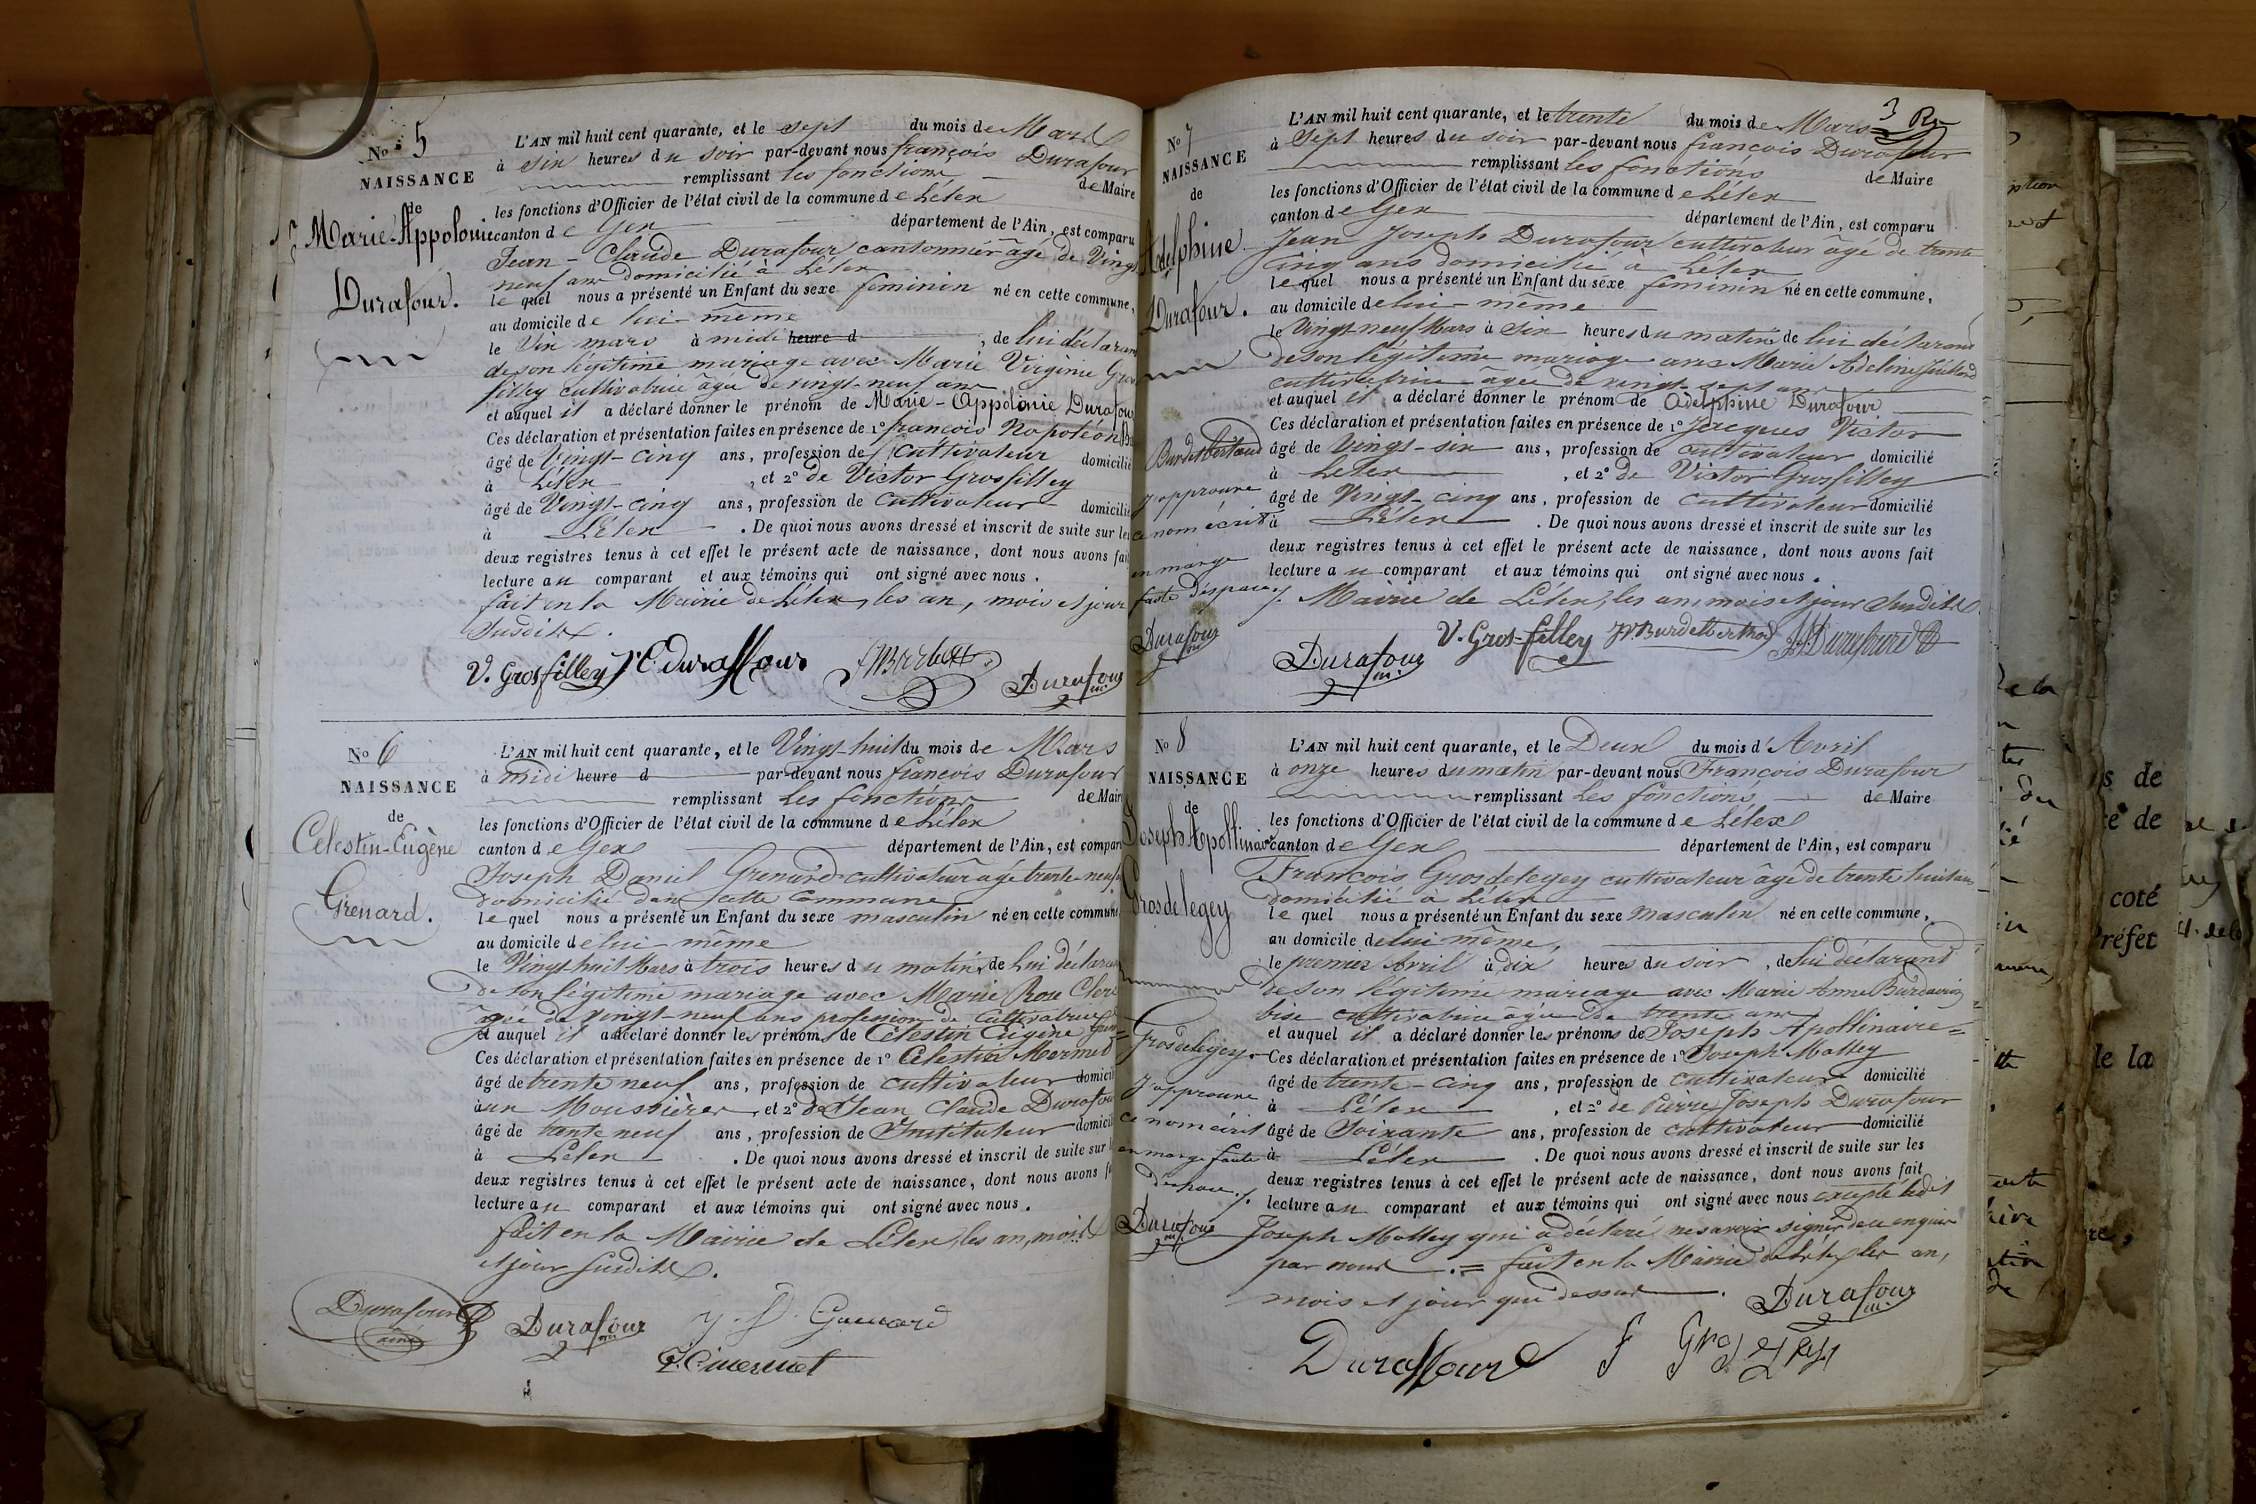 No 5
NAISSANCE
de
Marie-Appolonie
Durafour.
L'AN mil huit cent quarante, et le sept du mois de Mars
à six heures du soir par-devant nous françois Durafour
remplissant les fonctions de Maire
les fonctions d'Officier de l'état civil de la commune de Lélex
canton de Gex département de l'Ain, est comparu
Jean-Claude Durafour cantonnier âgé de Vingt
neuf ans domicilié à Lélex
le quel nous a présenté un Enfant du sexe féminin né en cette commune,
au domicile de lui-même
le Six mars à midi heure d , de lui déclarant
de son légitime mariage avec Marie Virginie Gros
filley cultivatrice âgée de vingt-neuf ans
et auquel il a déclaré donner le prénom de Marie-Appolonie Durafour
Ces déclaration et présentation faites en présence de 1° françois Napoléon
âgé de Vingt-cinq ans, profession de Cultivateur domicilié
à Lélex , et 2° de Victor Grosfilley
âgé de Vingt-cinq ans, profession de Cultivateur domicilié
à Lélex . De quoi nous avons dressé et inscrit de suite sur les
deux registres tenus à cet effet le présent acte de naissance, dont nous avons fait
lecture au comparant et aux témoins qui ont signé avec nous.
fait en la Mairie de Lélex, les an, mois et jour
Susdits.
V. Grosfilley J C duraffour Durafour
No 6
NAISSANCE
de
Celestin-Eugène
Grenard.
L'AN mil huit cent quarante, et le Vingt-huit du mois de Mars
à midi heure d par-devant nous françois Durafour
remplissant les fonctions de Maire
les fonctions d'Officier de l'état civil de la commune de Lélex
canton de Gex département de l'Ain, est comparu
Joseph Daniel Grenard cultivateur âgé trente-neuf
domicilié dans cette Commune
le quel nous a présenté un Enfant du sexe masculin né en cette commune,
au domicile de lui-même
le Vingt-huit Mars à trois heures du matin, de lui déclarant
de son légitime mariage avec Marie Rose Clerc
âgée de vingt-neuf ans profession de Cultivatrice
et auquel il a déclaré donner les prénoms de Celestin Eugène
Ces déclaration et présentation faites en présence de 1° Célestin Mermet
âgé de trente neuf ans, profession de cultivateur domicilié
aux Moussières, et 2° de Jean Claude Durafour
âgé de trente neuf ans, profession de Instituteur domicilié
à Lélex . De quoi nous avons dressé et inscrit de suite sur
deux registres tenus à cet effet le présent acte de naissance, dont nous avons
lecture au comparant et aux témoins qui ont signé avec nous.
fait en la Mairie de Lélex, les an, mois
et jour susdits.
Durafour
ainé
Durafour
3
No 7
NAISSANCE
de
Adelphine
Durafour.
Burdet Bertaud
J'approuve
ce nom écrit
en marge
faute d'espace
Durafour
L'AN mil huit cent quarante, et le trente du mois de Mars
à Sept heures du soir par-devant nous françois Durafour
remplissant les fonctions de Maire
les fonctions d'Officier de l'état civil de la commune de Lélex
canton de Gex département de l'Ain, est comparu
Jean Joseph Durafour cultivateur âgé de trente
cinq ans domicilié à Lélex
le quel nous a présenté un Enfant du sexe féminin né en cette commune,
au domicile de lui-même
le Vingt-neuf Mars à Six heures du matin, de lui déclarant
de son légitime mariage avec Marie Adeline
cultivatrice âgée de vingt-sept ans
et auquel il a déclaré donner le prénom de Adelphine Durafour
Ces déclaration et présentation faites en présence de 1° Jacques Victor
âgé de Vingt-six ans, profession de cultivateur domicilié
à Lélex , et 2° de Victor Grosfilley
âgé de Vingt-cinq ans, profession de cultivateur domicilié
à Lélex . De quoi nous avons dressé et inscrit de suite sur les
deux registres tenus à cet effet le présent acte de naissance, dont nous avons fait
lecture au comparant et aux témoins qui ont signé avec nous.
Mairie de Lélex, les an, mois et jour susdits
Durafour V. Gros-filley
No 8
NAISSANCE
de
Joseph Apollinaire
Grosdelegey
Grosdelegey
J'approuve
ce nom écrit
en marge faute
d'espace
Durafour
L'AN mil huit cent quarante, et le Deux du mois d'Avril
à onze heures du matin par-devant nous François Durafour
remplissant les fonctions de Maire
les fonctions d'Officier de l'état civil de la commune de Lélex
canton de Gex département de l'Ain, est comparu
François Grosdelegey cultivateur âgé de trente huit ans
domicilié à Lélex
le quel nous a présenté un Enfant du sexe masculin né en cette commune,
au domicile de lui même,
le premier Avril à dix heures du soir, de lui déclarant
de son légitime mariage avec Marie Anne
cultivatrice âgée de trente ans
et auquel il a déclaré donner les prénoms de Joseph Apollinaire =
Ces déclaration et présentation faites en présence de 1° Joseph Molley
âgé de trente-cinq ans, profession de cultivateur domicilié
à Lélex , et 2° de Pierre Joseph Durafour
âgé de Soixante ans, profession de cultivateur domicilié
à Lélex . De quoi nous avons dressé et inscrit de suite sur les
deux registres tenus à cet effet le présent acte de naissance, dont nous avons fait
lecture au comparant et aux témoins qui ont signé avec nous excepté ledit
Joseph Molley qui a déclaré ne savoir signer de ce enquis
par nous. = fait en la Mairie de Lélex les an,
mois et jour que dessus.
Durafour
Duraffour
s de
de
coté
Préfet
de la